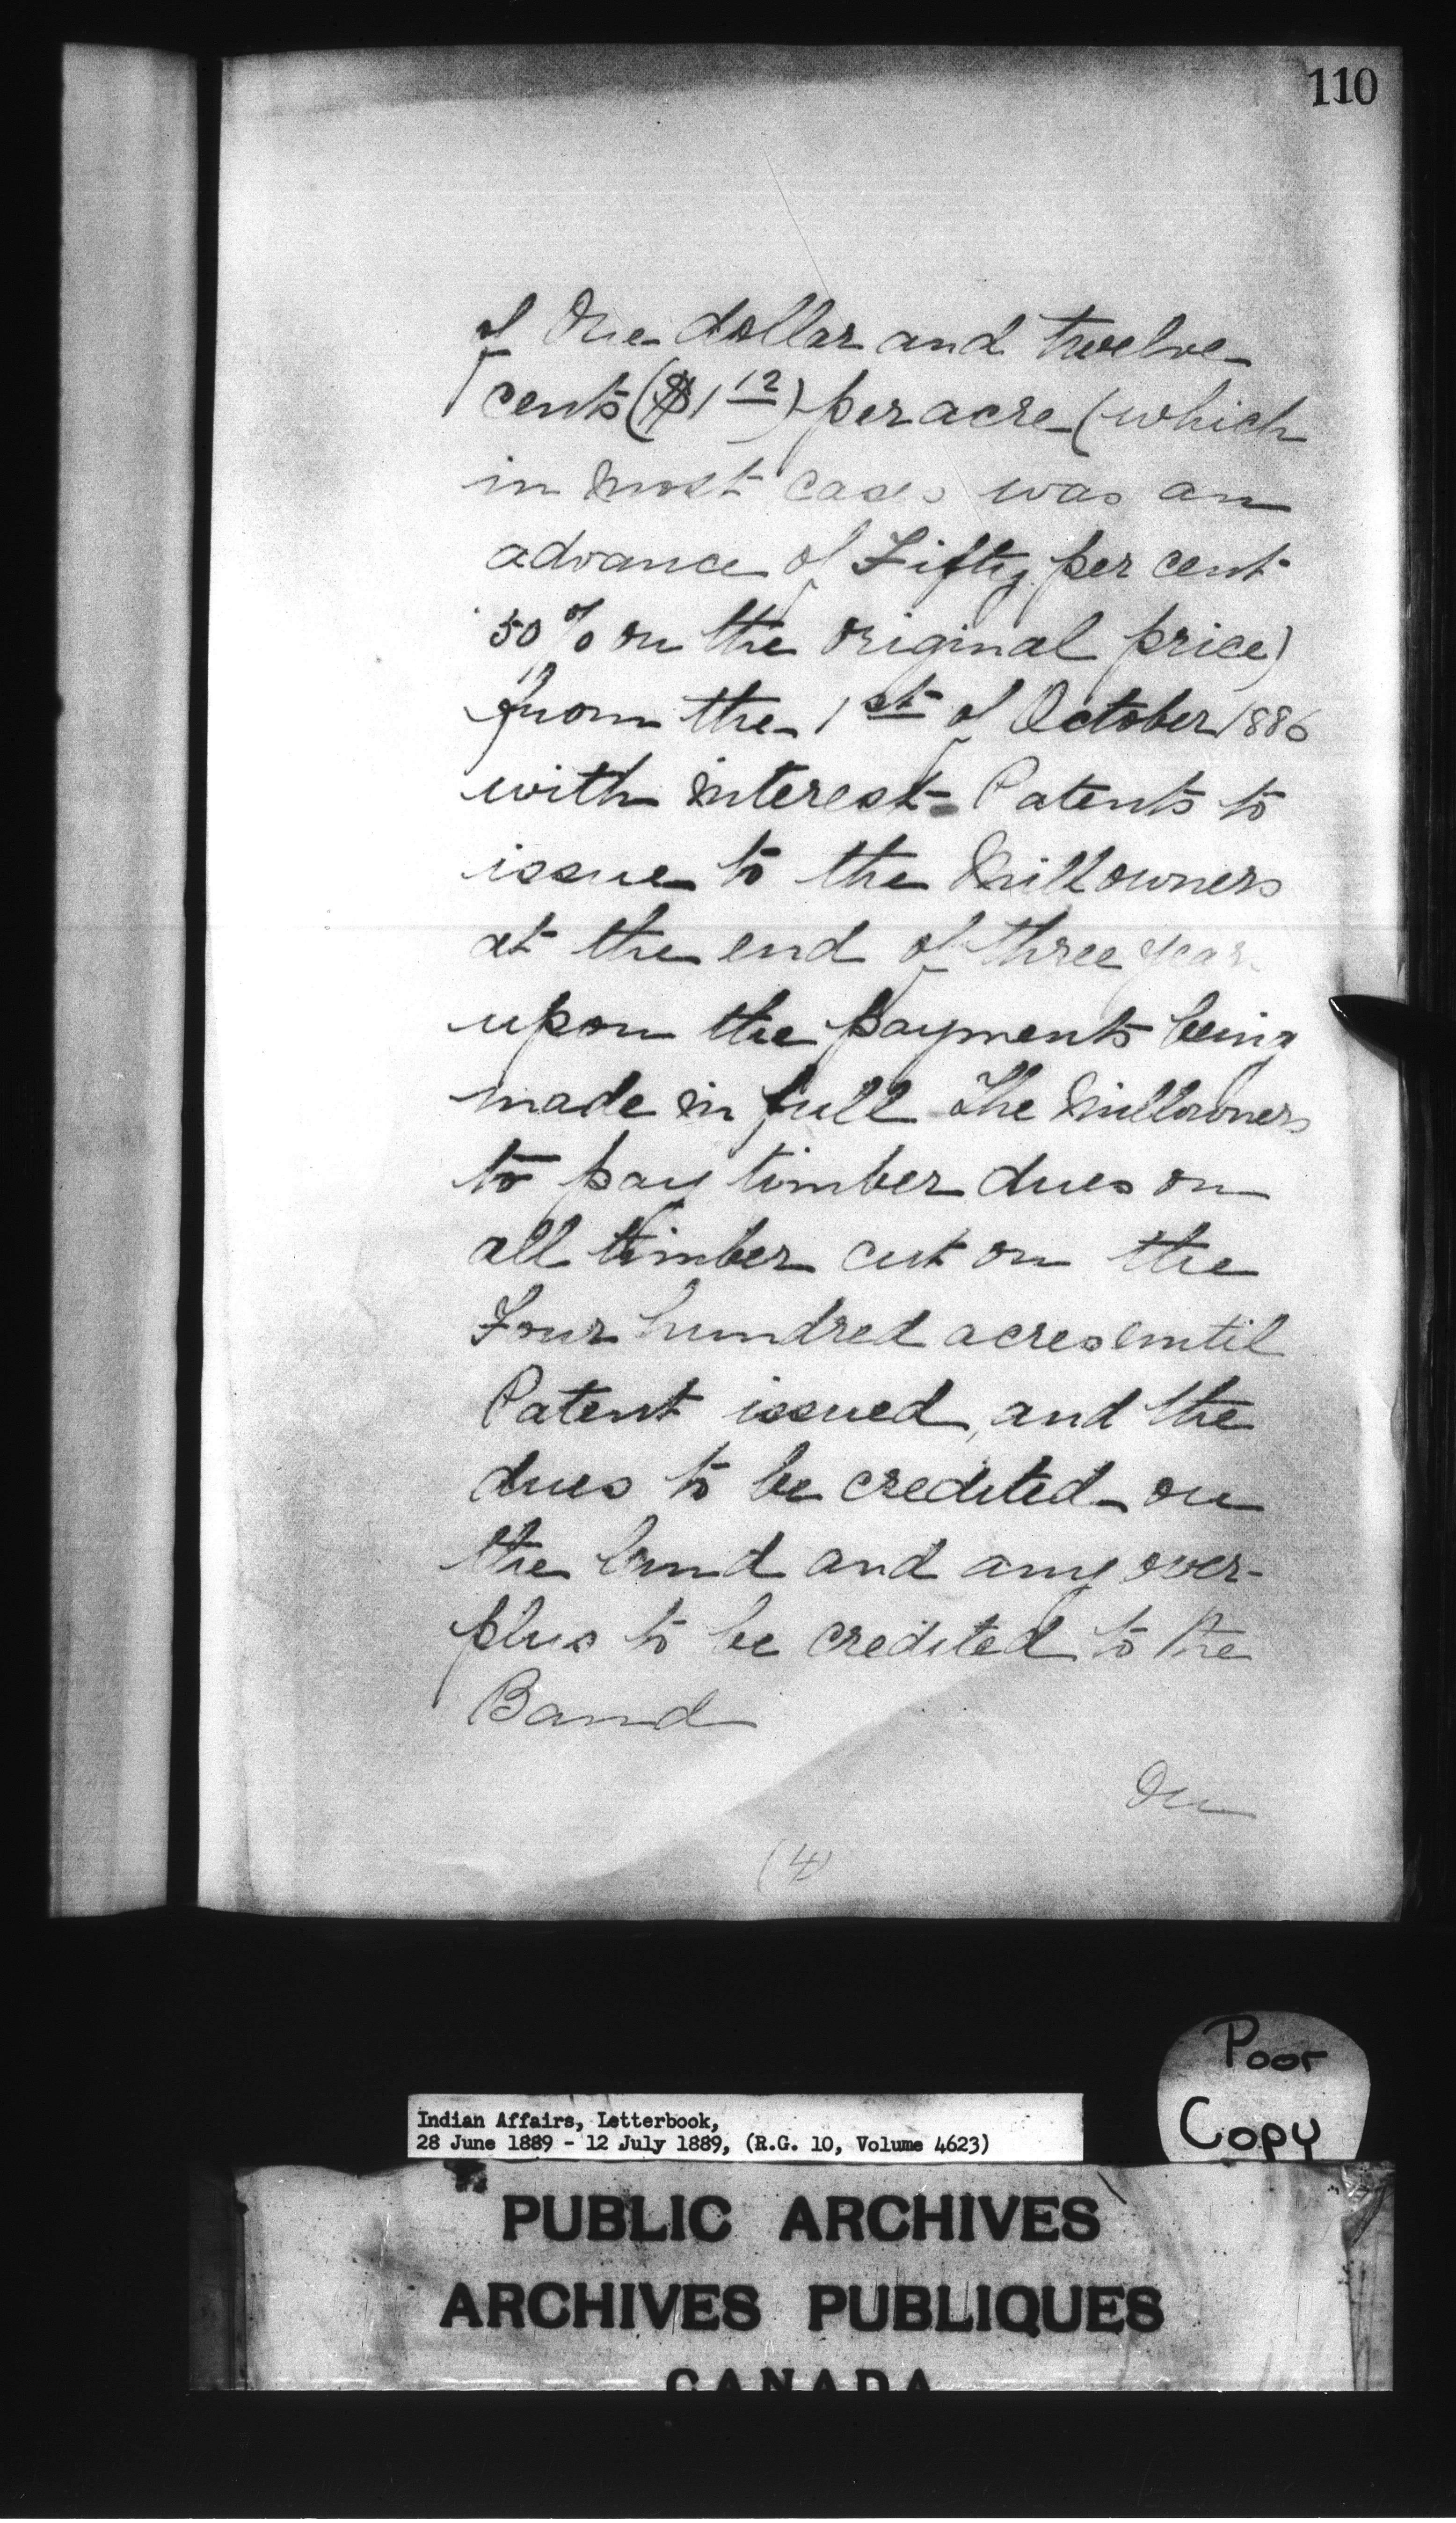 110
of One dollar and twelve
cents ($1 12) per acre (which
in most cases was an
advance of Fifty per cent
50% on the original price)
from the 1st of October 1886
with interest - Patents to
issue to the Mill owners
at the end of three year
upon the payments being
made in full The Millowners
to pay timber dues on
all timber cut on the
Four hundred acres until
Patent issued, and the
dues to be credited on
the land and any over-
plus to be credited to the
Band
On
(4)
Poor
Copy
Indian Affairs, Letterbook,
28 June 1889 - 12 July 1889, (R.G. 10, Volume 4623)
PUBLIC ARCHIVES
ARCHIVES PUBLIQUES
CANADA